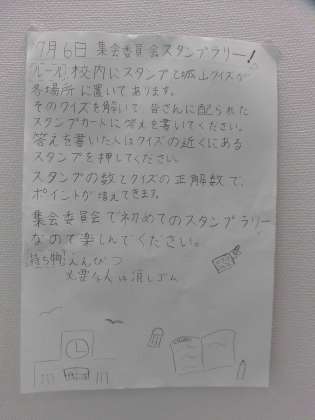 7月6日 集会委員会スタンプラリー!
ルール 校内にスタンプと城山クイズが
各場所に置いてあります。
そのクイズを解いて皆さんに配られた
スタンプカードに答えを書いてください。
答えを書いた人はクイズの近くにある
スタンプを押してください。
スタンプの数とクイズの正解数で、
ポイントが増えてきます。
集会委員会で初めてのスタンプラリー
なので楽しんでください。
持ち物 えんぴつ
必要な人は消しゴム